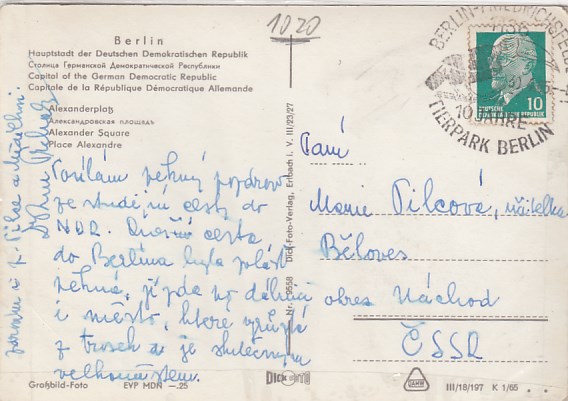 1020
Berlin
Hauptstadt der Deutschen Demokratischen Republik
Столица Германской Демократической Республики
Capital of the German Democratic Republic
Capitale de la République Démocratique Allemande
Alexanderplatz
Александровская площадь
Alexander Square
Place Alexandre
Posílám pěkný pozdrav
ze studijní cesty do
NDR. Dnešní cesta
do Berlína byla zvlášť
pěkná, jízda po dálnici
i město, které vyrůstá
z trosek a je skutečným
velkoměstem.
zároveň i p. Pilce a
Paní
Marie Pilcová, učitelka
Běloves
okres Náchod
ČSSR
BERLIN-FRIEDRICHSFELDE
1136
10 JAHRE
TIERPARK BERLIN
DEUTSCHE
DEMOKRATISCHE REPUBLIK
10
Nr. 9558 Dick-Foto-Verlag, Erlbach i. V. III/23/27
Großbild-Foto EVP MDN —.25
DICK
III/18/197 K 1/65